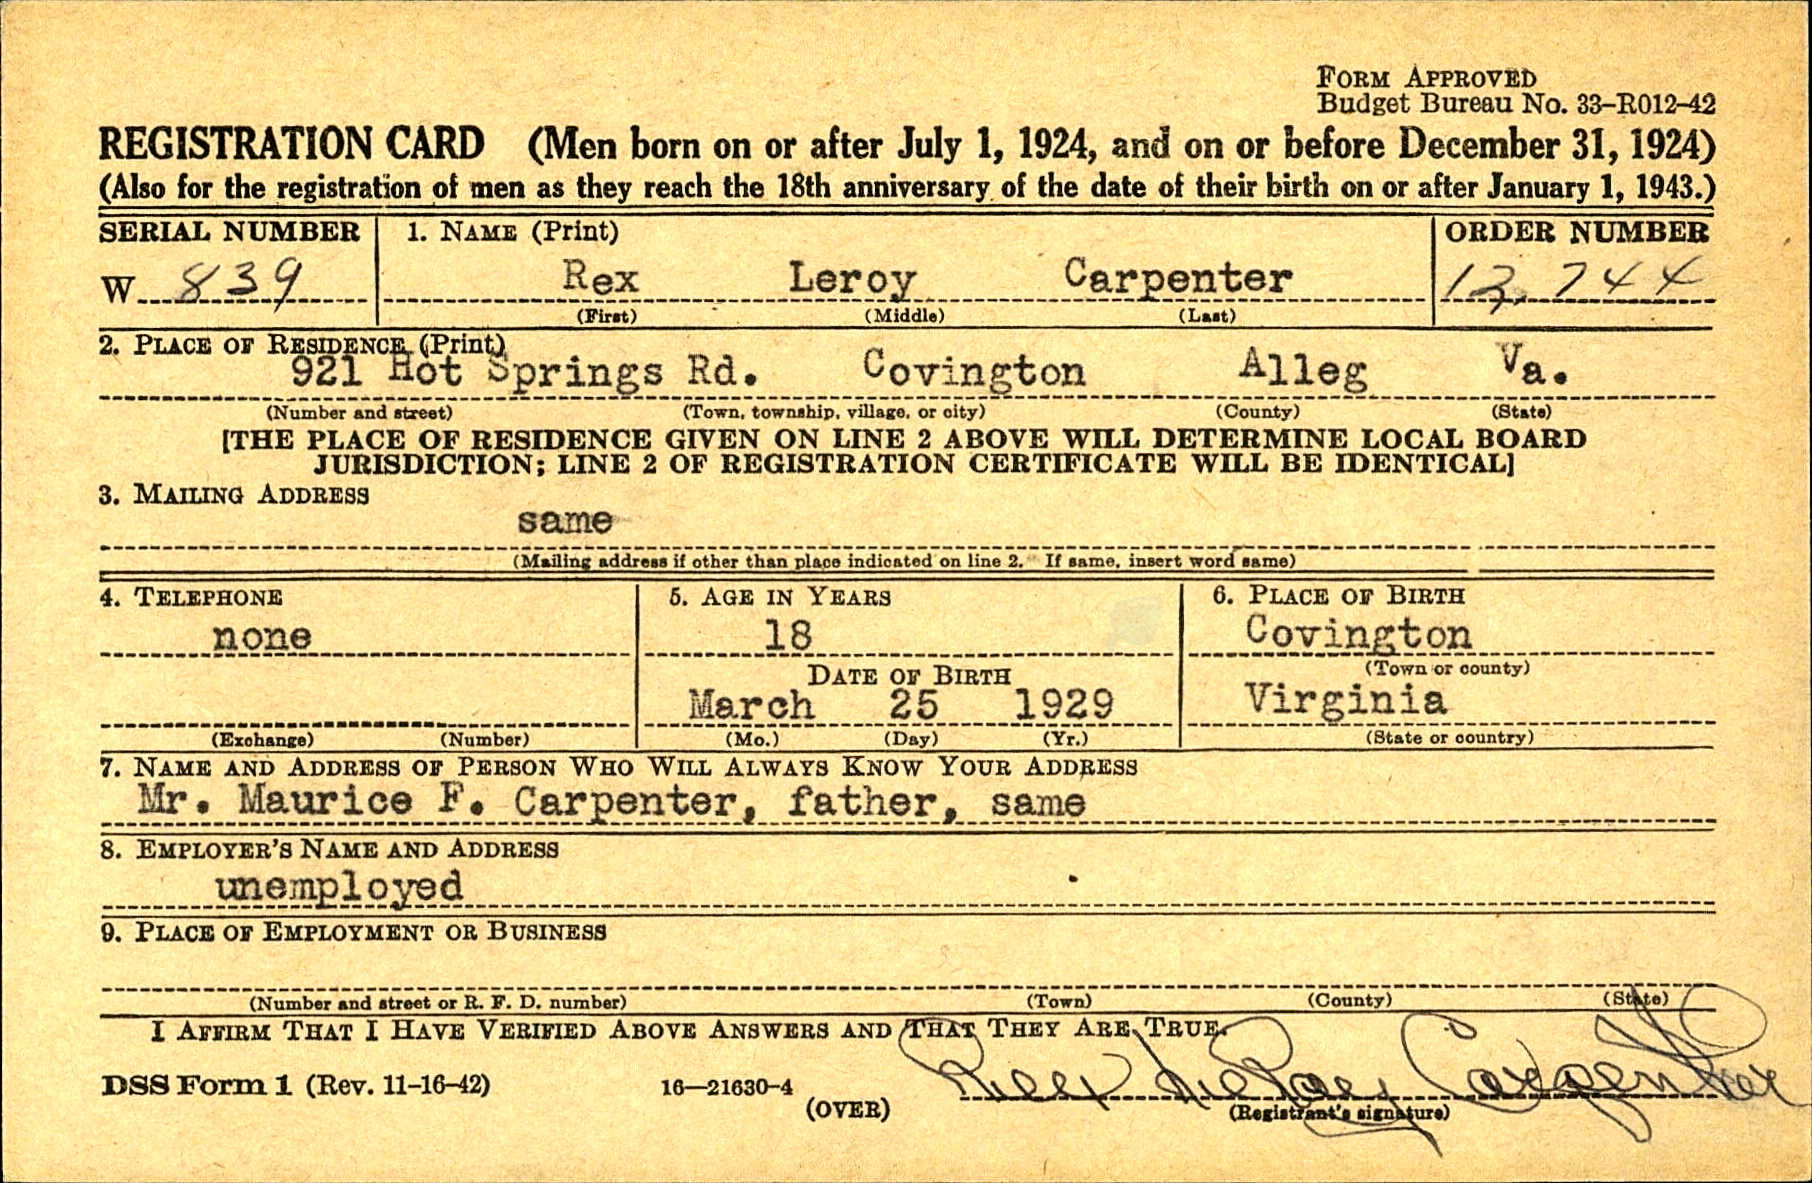 FORM APPROVED
Budget Bureau No. 33–R012–42
REGISTRATION CARD (Men born on or after July 1, 1924, and on or before December 31, 1924)
(Also for the registration of men as they reach the 18th anniversary of the date of their birth on or after January 1, 1943.)
SERIAL NUMBER 1. NAME (Print) ORDER NUMBER
W 839 Rex Leroy Carpenter 12,744
(First) (Middle) (Last)
2. PLACE OF RESIDENCE (Print)
921 Hot Springs Rd. Covington Alleg Va.
(Number and street) (Town, township, village, or city) (County) (State)
[THE PLACE OF RESIDENCE GIVEN ON LINE 2 ABOVE WILL DETERMINE LOCAL BOARD
JURISDICTION; LINE 2 OF REGISTRATION CERTIFICATE WILL BE IDENTICAL]
3. MAILING ADDRESS
same
(Mailing address if other than place indicated on line 2. If same, insert word same)
4. TELEPHONE 5. AGE IN YEARS 6. PLACE OF BIRTH
none 18 Covington
DATE OF BIRTH (Town or county)
March 25 1929 Virginia
(Exchange) (Number) (Mo.) (Day) (Yr.) (State or country)
7. NAME AND ADDRESS OF PERSON WHO WILL ALWAYS KNOW YOUR ADDRESS
Mr. Maurice F. Carpenter, father, same
8. EMPLOYER'S NAME AND ADDRESS
unemployed
9. PLACE OF EMPLOYMENT OR BUSINESS
(Number and street or R. F. D. number) (Town) (County) (State)
I AFFIRM THAT I HAVE VERIFIED ABOVE ANSWERS AND THAT THEY ARE TRUE.
DSS Form 1 (Rev. 11-16-42) 16—21630-4 Rex LeRoy Carpenter
(OVER) (Registrant's signature)